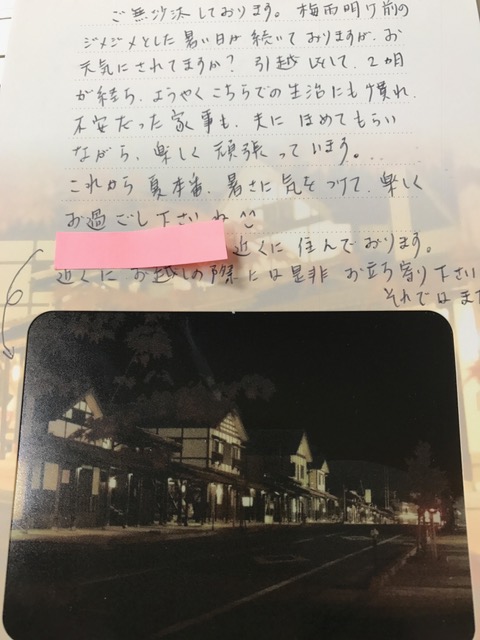 ご無沙汰しております。梅雨明け前の
ジメジメとした暑い日が続いておりますが、お
元気にされてますか？ 引越しをして、2ヵ月
が経ち、ようやくこちらでの生活にも慣れ、
不安だった家事も、夫にほめてもらい
ながら、楽しく頑張っています。..
これから夏本番、暑さに気をつけて、楽しく
お過ごし下さいね
近くに住んでおります。
近くにお越しの際には是非お立ち寄り下さい
それではまた